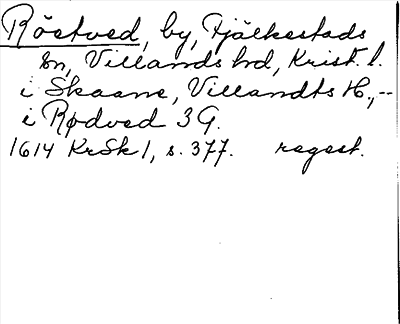 Röstved, by, Fjälkestads
sn, Villands hd, Krist. l.
i Skaane, Villandts H.,--
i Rødved 3 G.
1614 KrSk 1, s. 377. regest.